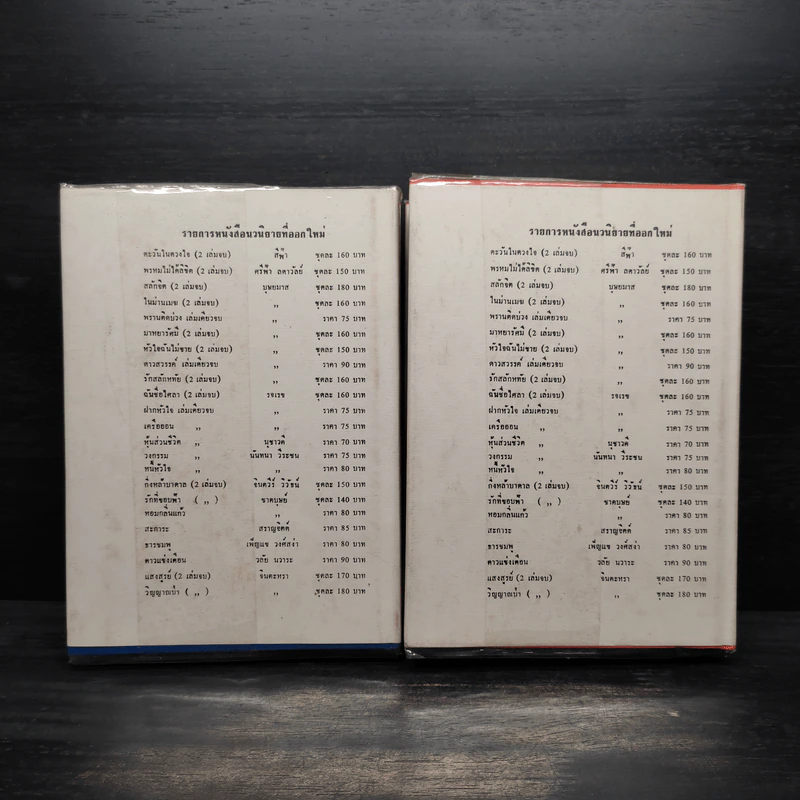 รายการหนังสือนวนิยายที่ออกใหม่
ตะวันในดวงใจ (2 เล่มจบ) สีฟ้า ชุดละ 160 บาท
พรหมไม่ได้ลิขิต (2 เล่มจบ) ศรีฟ้า ลดาวัลย์ ชุดละ 150 บาท
สลักจิต (2 เล่มจบ) บุษยมาส ชุดละ 180 บาท
ในม่านเมฆ (2 เล่มจบ) ,, ชุดละ 160 บาท
พรานติดบ่วง เล่มเดียวจบ ,, ราคา 75 บาท
มาหยารัศมี (2 เล่มจบ) ,, ชุดละ 160 บาท
หัวใจฉันไม่ขาย (2 เล่มจบ) ,, ชุดละ 150 บาท
ดาวสวรรค์ เล่มเดียวจบ ,, ราคา 90 บาท
รักสลักหทัย (2 เล่มจบ) ,, ชุดละ 160 บาท
ฉันชื่อไศลา (2 เล่มจบ) รจเรข ชุดละ 160 บาท
ฝากหัวใจ เล่มเดียวจบ ,, ราคา 75 บาท
เครือออน ,, ,, ราคา 75 บาท
หุ้นส่วนชีวิต ,, นุชาวดี ราคา 70 บาท
วงกรรม ,, นันทนา วีระชน ราคา 75 บาท
หนี้หัวใจ ,, ราคา 80 บาท
กิ่งหล้าบาดาล (2 เล่มจบ) จินตวีร์ วิวัธน์ ชุดละ 150 บาท
รักที่ขอบฟ้า ( ,, ) ชาตบุษย์ ชุดละ 140 บาท
หอมกลิ่นแก้ว ,, ราคา 80 บาท
สะการะ สราญจิตต์ ราคา 85 บาท
ธารชมพู เพ็ญแข วงศ์สง่า ราคา 80 บาท
ดาวแข่งเดือน วลัย นวาระ ราคา 90 บาท
แสงสูรย์ (2 เล่มจบ) จินตะหรา ชุดละ 170 บาท
วิญญาณเป่า ( ,, ) ,, ชุดละ 180 บาท
รายการหนังสือนวนิยายที่ออกใหม่
ตะวันในดวงใจ (2 เล่มจบ) สีฟ้า ชุดละ 160 บาท
พรหมไม่ได้ลิขิต (2 เล่มจบ) ศรีฟ้า ลดาวัลย์ ชุดละ 150 บาท
สลักจิต (2 เล่มจบ) บุษยมาส ชุดละ 180 บาท
ในม่านเมฆ (2 เล่มจบ) ,, ชุดละ 160 บาท
พรานติดบ่วง เล่มเดียวจบ ,, ราคา 75 บาท
มาหยารัศมี (2 เล่มจบ) ,, ชุดละ 160 บาท
หัวใจฉันไม่ขาย (2 เล่มจบ) ,, ชุดละ 150 บาท
ดาวสวรรค์ เล่มเดียวจบ ,, ราคา 90 บาท
รักสลักหทัย (2 เล่มจบ) ,, ชุดละ 160 บาท
ฉันชื่อไศลา (2 เล่มจบ) รจเรข ชุดละ 160 บาท
ฝากหัวใจ เล่มเดียวจบ ,, ราคา 75 บาท
เครือออน ,, ,, ราคา 75 บาท
หุ้นส่วนชีวิต ,, นุชาวดี ราคา 70 บาท
วงกรรม ,, นันทนา วีระชน ราคา 75 บาท
หนี้หัวใจ ,, ราคา 80 บาท
กิ่งหล้าบาดาล (2 เล่มจบ) จินตวีร์ วิวัธน์ ชุดละ 150 บาท
รักที่ขอบฟ้า ( ,, ) ชาตบุษย์ ชุดละ 140 บาท
หอมกลิ่นแก้ว ,, ราคา 80 บาท
สะการะ สราญจิตต์ ราคา 85 บาท
ธารชมพู เพ็ญแข วงศ์สง่า ราคา 80 บาท
ดาวแข่งเดือน วลัย นวาระ ราคา 90 บาท
แสงสูรย์ (2 เล่มจบ) จินตะหรา ชุดละ 170 บาท
วิญญาณเป่า ( ,, ) ,, ชุดละ 180 บาท